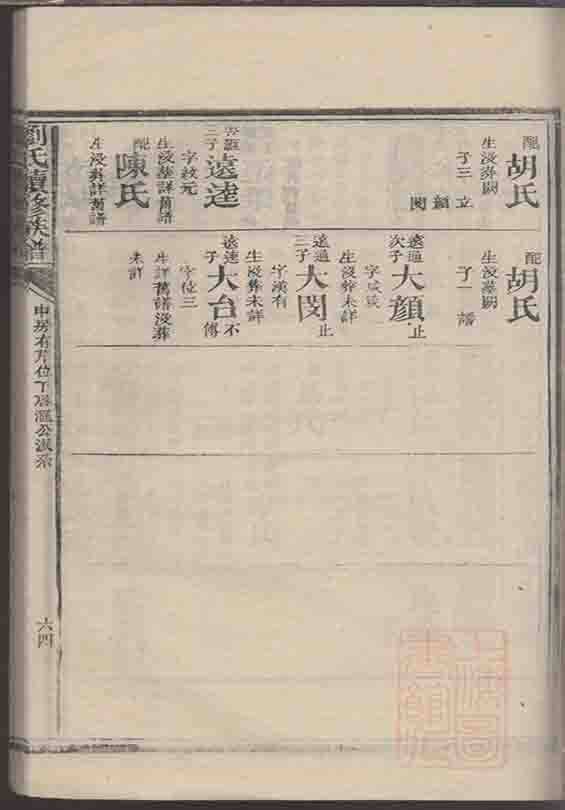 配胡氏
生没葬闕
子三 立
顏
閔
遠達
字紋元
生没葬詳舊譜
配陳氏
生没葬詳舊譜
配胡氏
生没葬闕
子一 譜
遠通次子大顏止
生没葬未詳
遠通三子大閔止
字漢有
生没葬未詳
遠達子大台不傳
字位三
生詳舊譜没葬
未詳
劉氏續修族譜
中房有芹位下
公派系
六四